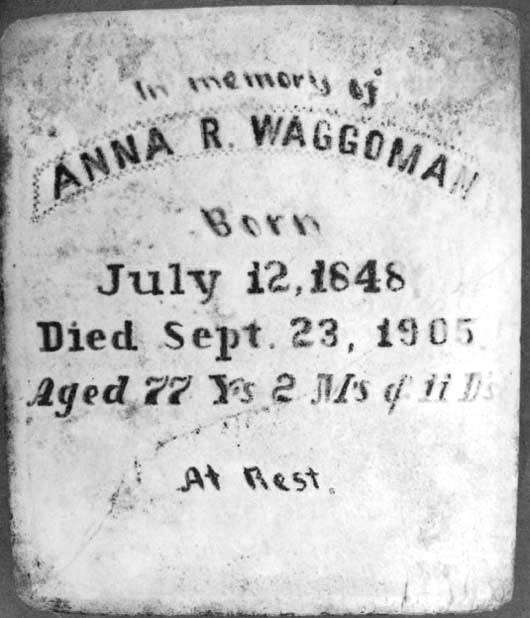 In memory of
ANNA R. WAGGOMAN
Born
July 12, 1848
Died Sept. 23, 1905.
Aged 77 Ys 2 Ms & 11 Ds
At Rest.